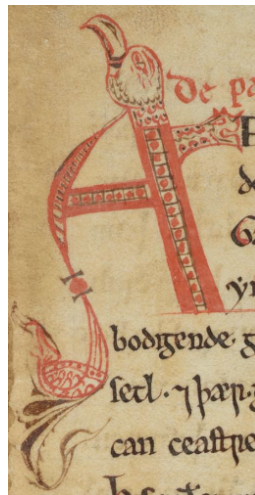 De pa
A
de
bodigende· g
setl· ⁊ þær·
can ceastre